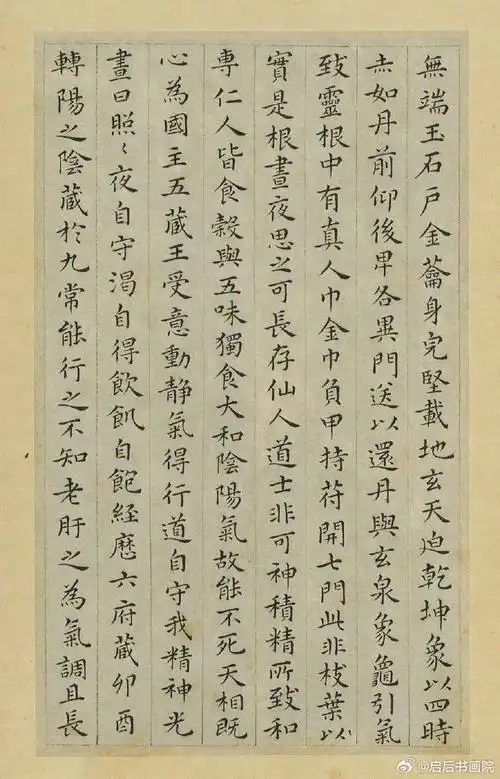 無端玉石戶金籥身完堅載地玄天迫乾坤象以四時
赤如丹前仰後卑各異門送以還丹與玄泉象龜引氣
致靈根中有真人巾金巾負甲持苻開七門此非枝葉以
實是根晝夜思之可長存仙人道士非可神積精所致和
專仁人皆食穀與五味獨食大和陰陽氣故能不死天相既
心為國主五藏王受意動静氣得行道自守我精神光
晝日照〻夜自守渴自得飲飢自飽経歷六府藏卯酉
轉陽之陰藏於九常能行之不知老肝之為氣調且長
@启后书画院